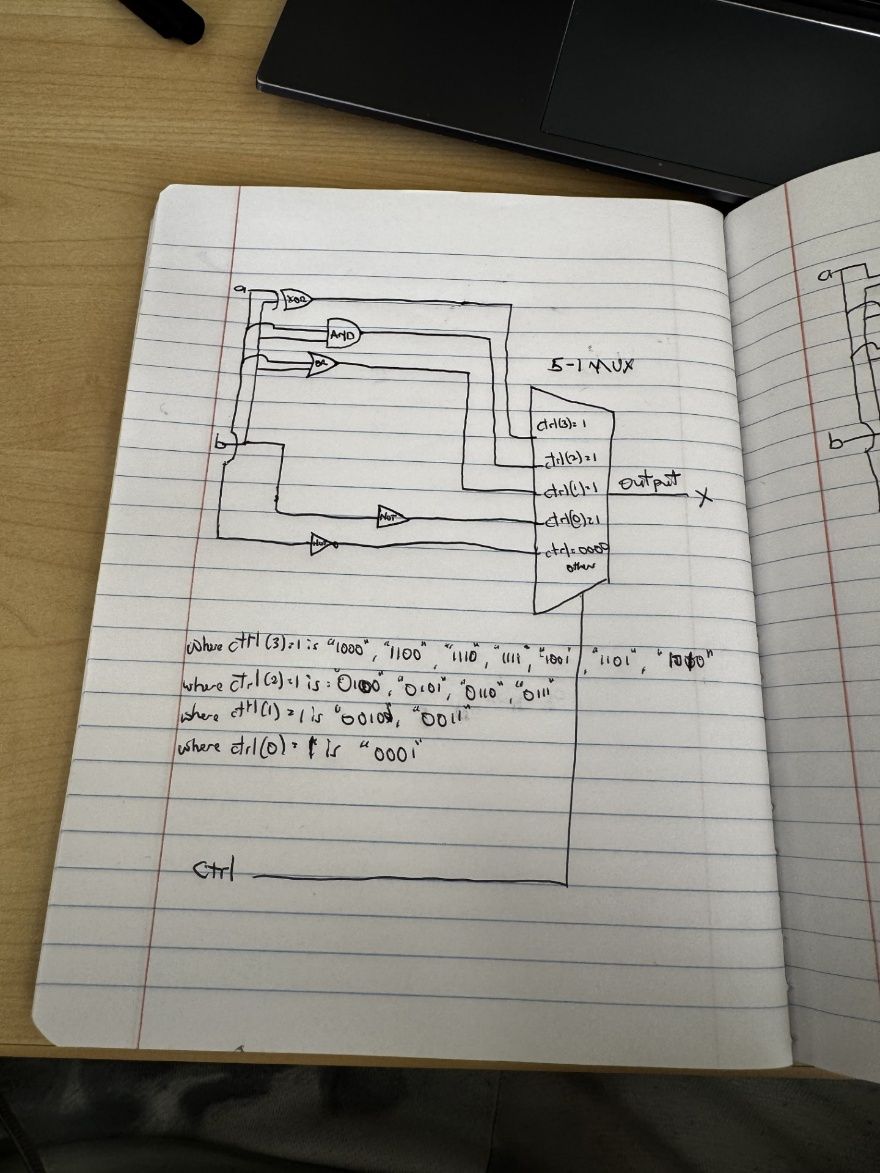 a
XOR
AND
OR
5-1 MUX
ctrl(3)=1
b
ctrl(2)=1
ctrl(1)=1
output
X
NOT
ctrl(0)=1
NOT
ctrl=0000
other
where ctrl(3)=1 is "1000", "1100", "1110", "1111", "1001", "1101", "1010"
where ctrl(2)=1 is: "0100", "0101", "0110", "0111"
where ctrl(1)=1 is "0010", "0011"
where ctrl(0)=1 is "0001"
Ctrl
a
b